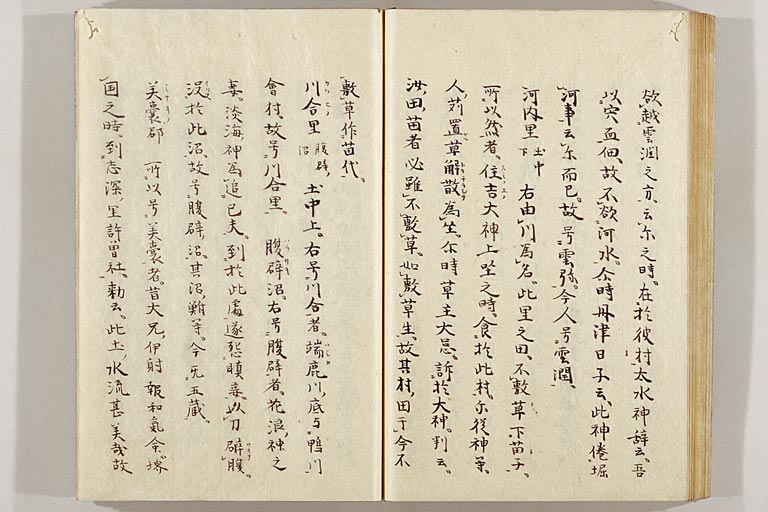 欲越雲潤之方云尓之時在於彼村太水神辞云吾
以宍血佃故不欲河水尒時丹津日子云此神倦堀
河事云尓而已故号雲弥今人号雲潤
河内里 土中下 右由川為名此里之田不敷草下苗子
所以然者住吉大神上坐之時食於此村尓従神等
人苅置草解散為坐尓時草主大忌訴於大神判云
汝田苗者必雖不敷草如敷草生故其村田于今不
敷草作苗代
川合里 腹辟沼 土中上右号川合者端鹿川底与鴨川
會村故号川合里 腹辟沼右号腹辟者花浪神之
妻淡海神為追己夫到於此處遂怨瞋妾以刀辟腹
没於此沼故号腹辟沼其沼鮒等今无五蔵
美嚢郡 所以号美嚢者昔大兄伊射報和氣命堺
国之時到志深里許曽社勅云此土水流甚美哉故